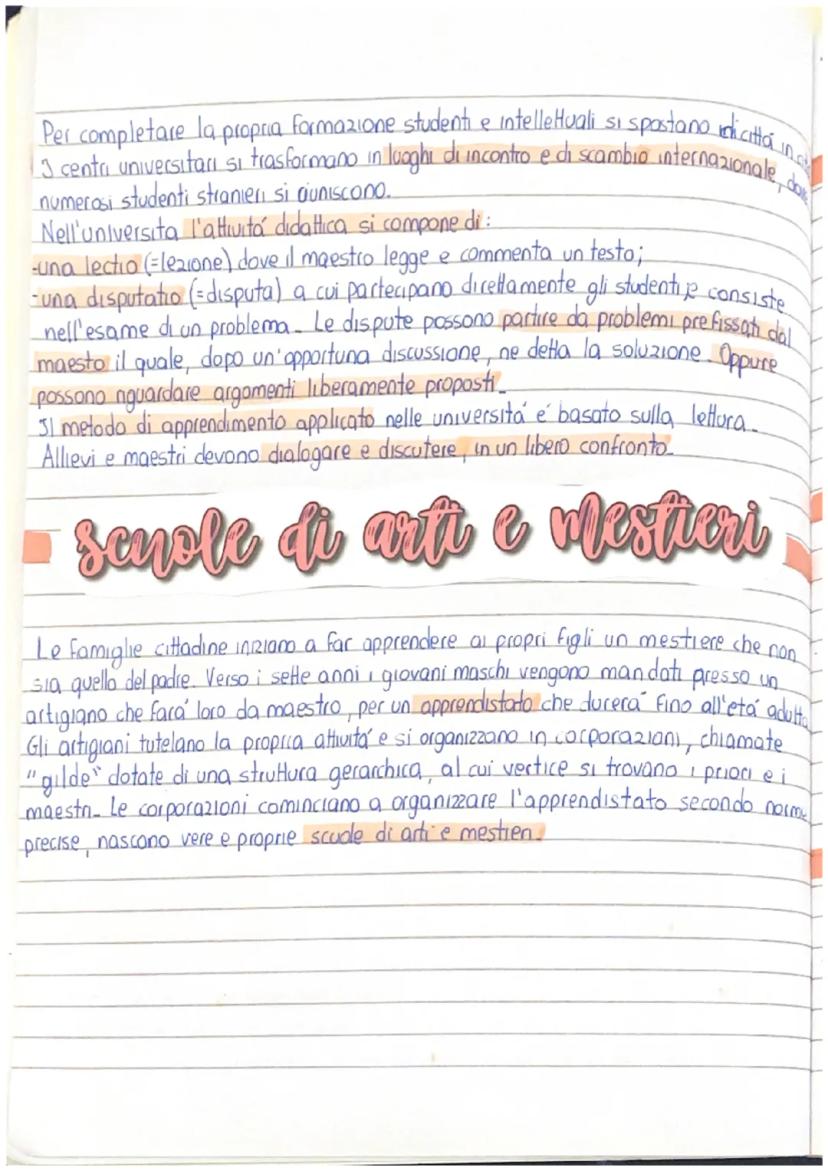 Per completare la propria formazione studenti e intellettuali si spostano di città in
I centri universitari si trasformano in luoghi di incontro e di scambio internazionale, dove
numerosi studenti stranieri si riuniscono.
Nell'università l'attività didattica si compone di:
-una lectio (=lezione) dove il maestro legge e commenta un testo;
-una disputatio (=disputa) a cui partecipano direttamente gli studenti e consiste
nell'esame di un problema. Le dispute possono partire da problemi prefissati dal
maesto il quale, dopo un'opportuna discussione, ne detta la soluzione. Oppure
possono riguardare argomenti liberamente proposti.
Il metodo di apprendimento applicato nelle università é basato sulla lettura.
Allievi e maestri devono dialogare e discutere, in un libero confronto.
scuole di arti e mestieri
Le famiglie cittadine iniziano a far apprendere ai propri figli un mestiere che non
sia quello del padre. Verso i sette anni i giovani maschi vengono mandati presso un
artigiano che fara' loro da maestro, per un apprendistato che durera' fino all'età adulta
Gli artigiani tutelano la propria attività e si organizzano in corporazioni, chiamate
"gilde" dotate di una struttura gerarchica, al cui vertice si trovano i priori e i
maestri. Le corporazioni cominciano a organizzare l'apprendistato secondo norme
precise, nascono vere e proprie scuole di arti e mestieri.